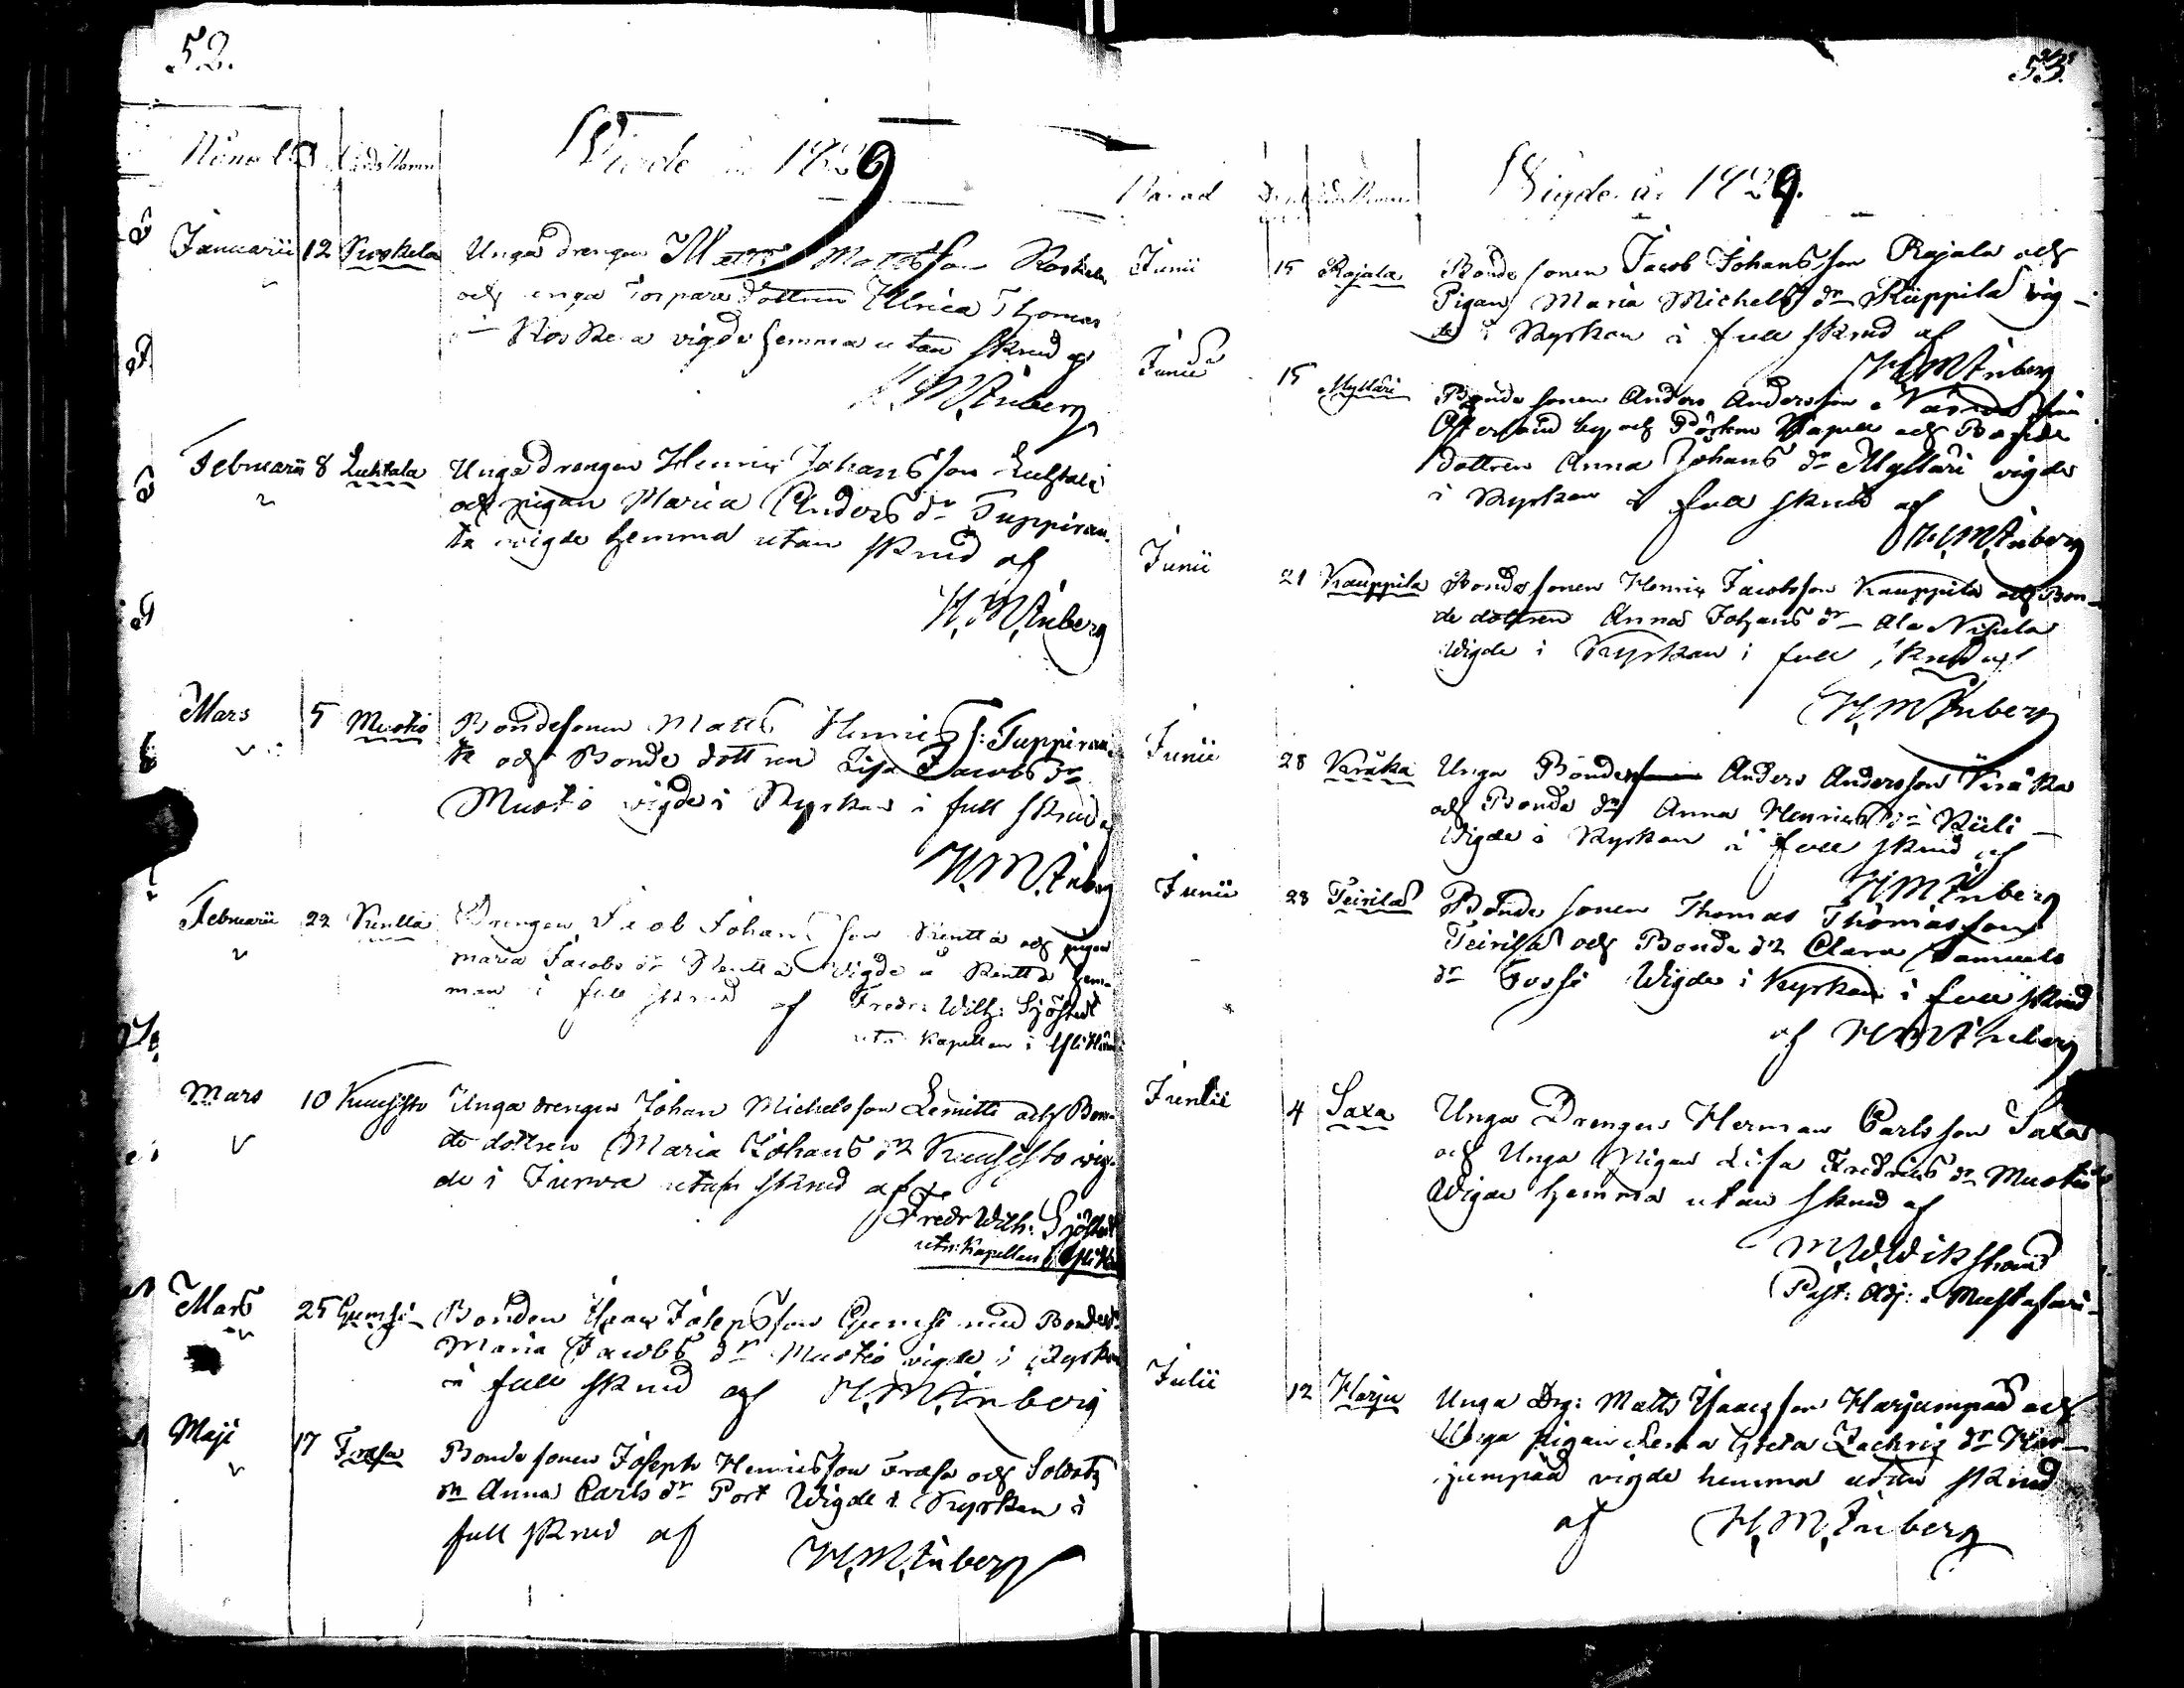 52.
Wigde år 1829
Månad Gårds Namn
Januarii 12 Koskela Unga drengen Matts Mattsson Koskela
och unga Torpare dottren Ulrica Thomas
dr Koskela vigde hemma utan skrud af
H.M.Inberg
Februarii 8 Luhtala Unga drengen Henric Johansson Luhtala
och pigan Maria Anders dr Tuppiran-
ta vigde hemma utan skrud af
H.M.Inberg
Mars 5 Mustio Bondesonen Matts Henrics: Tuppiran-
ta och Bonde dottren Lisa Jacobs dr
Mustio vigde i Kyrkan i full skrud af
H.M.Inberg
Februarii 22 Kentta Drengen Jacob Johansson Kentta och pigan
Maria Jacobs dr Kentta Vigde å Kentta hem-
man i full skrud af Fredr: Wilh: Sjöstedt
utn Kapellan i
Mars 10 Kuusisto Unga drengen Johan Michelsson Lemitti och Bon-
de dottren Maria Johans dr Kuusisto vig-
de i Jurva utan skrud af
Fredr Wilh: Sjöstedt
utn: Kapellan i
Mars 25 Gumsi Bonden Isaac Josephsson Gumsi med Bonded:
Maria Jacobs dr Mustio vigde i Kyrkan
i full skrud af H.M.Inberg
Maji 17 Frasa Bonde sonen Joseph Henricsson Frasa och Soldats
dr Anna Carls dr Port Wigde i Kyrkan i
full skrud af
H.M.Inberg
53.
Wigde år 1829.
Månad
Junii 15 Rajala Bonde sonen Jacob Johansson Rajala och
Pigan Maria Michels dr Kuppila vig-
de i Kyrkan i full skrud af
H.M.Inberg
Junii 15 Myllari Bonde sonen Anders Andersson
by och Kapell och Bonde
dottren Anna Johans dr Myllari vigde
i Kyrkan i full skrud af
H.M.Inberg
Junii 21 Kauppila Bonde sonen Henric Jacobsson Kauppila och Bon-
de dottren Anna Johans dr Ala Nisula
Wigde i Kyrkan i full skrud af
H.M.Inberg
Junii 28 Keräka Unga Bonde Anders Andersson Keräka
och Bonde dr Anna Henrics dr Küli
Wigde i Kyrkan i full skrud af
H.M.Inberg
Junii 28 Peirilä Bonde sonen Thomas Thomasson
Peirilä och Bonde dr Clara Samuels
dr Fossi Wigde i Kyrkan i full skrud
af H.M.Inberg
4 Saxa Unga Drengen Herman Carlsson Saxa
och Unga Pigan Lisa Fredrics dr Mustio
Wigde hemma utan skrud af
M.W.Wikstrand
Past: Adj: i Mustasari
Julii 12 Harju Unga Drg: Matts Isaacsson Harjunpää och
Unga pigan Lena Greta Zachris dr Har-
junpää vigde hemma utan skrud
af H.M.Inberg